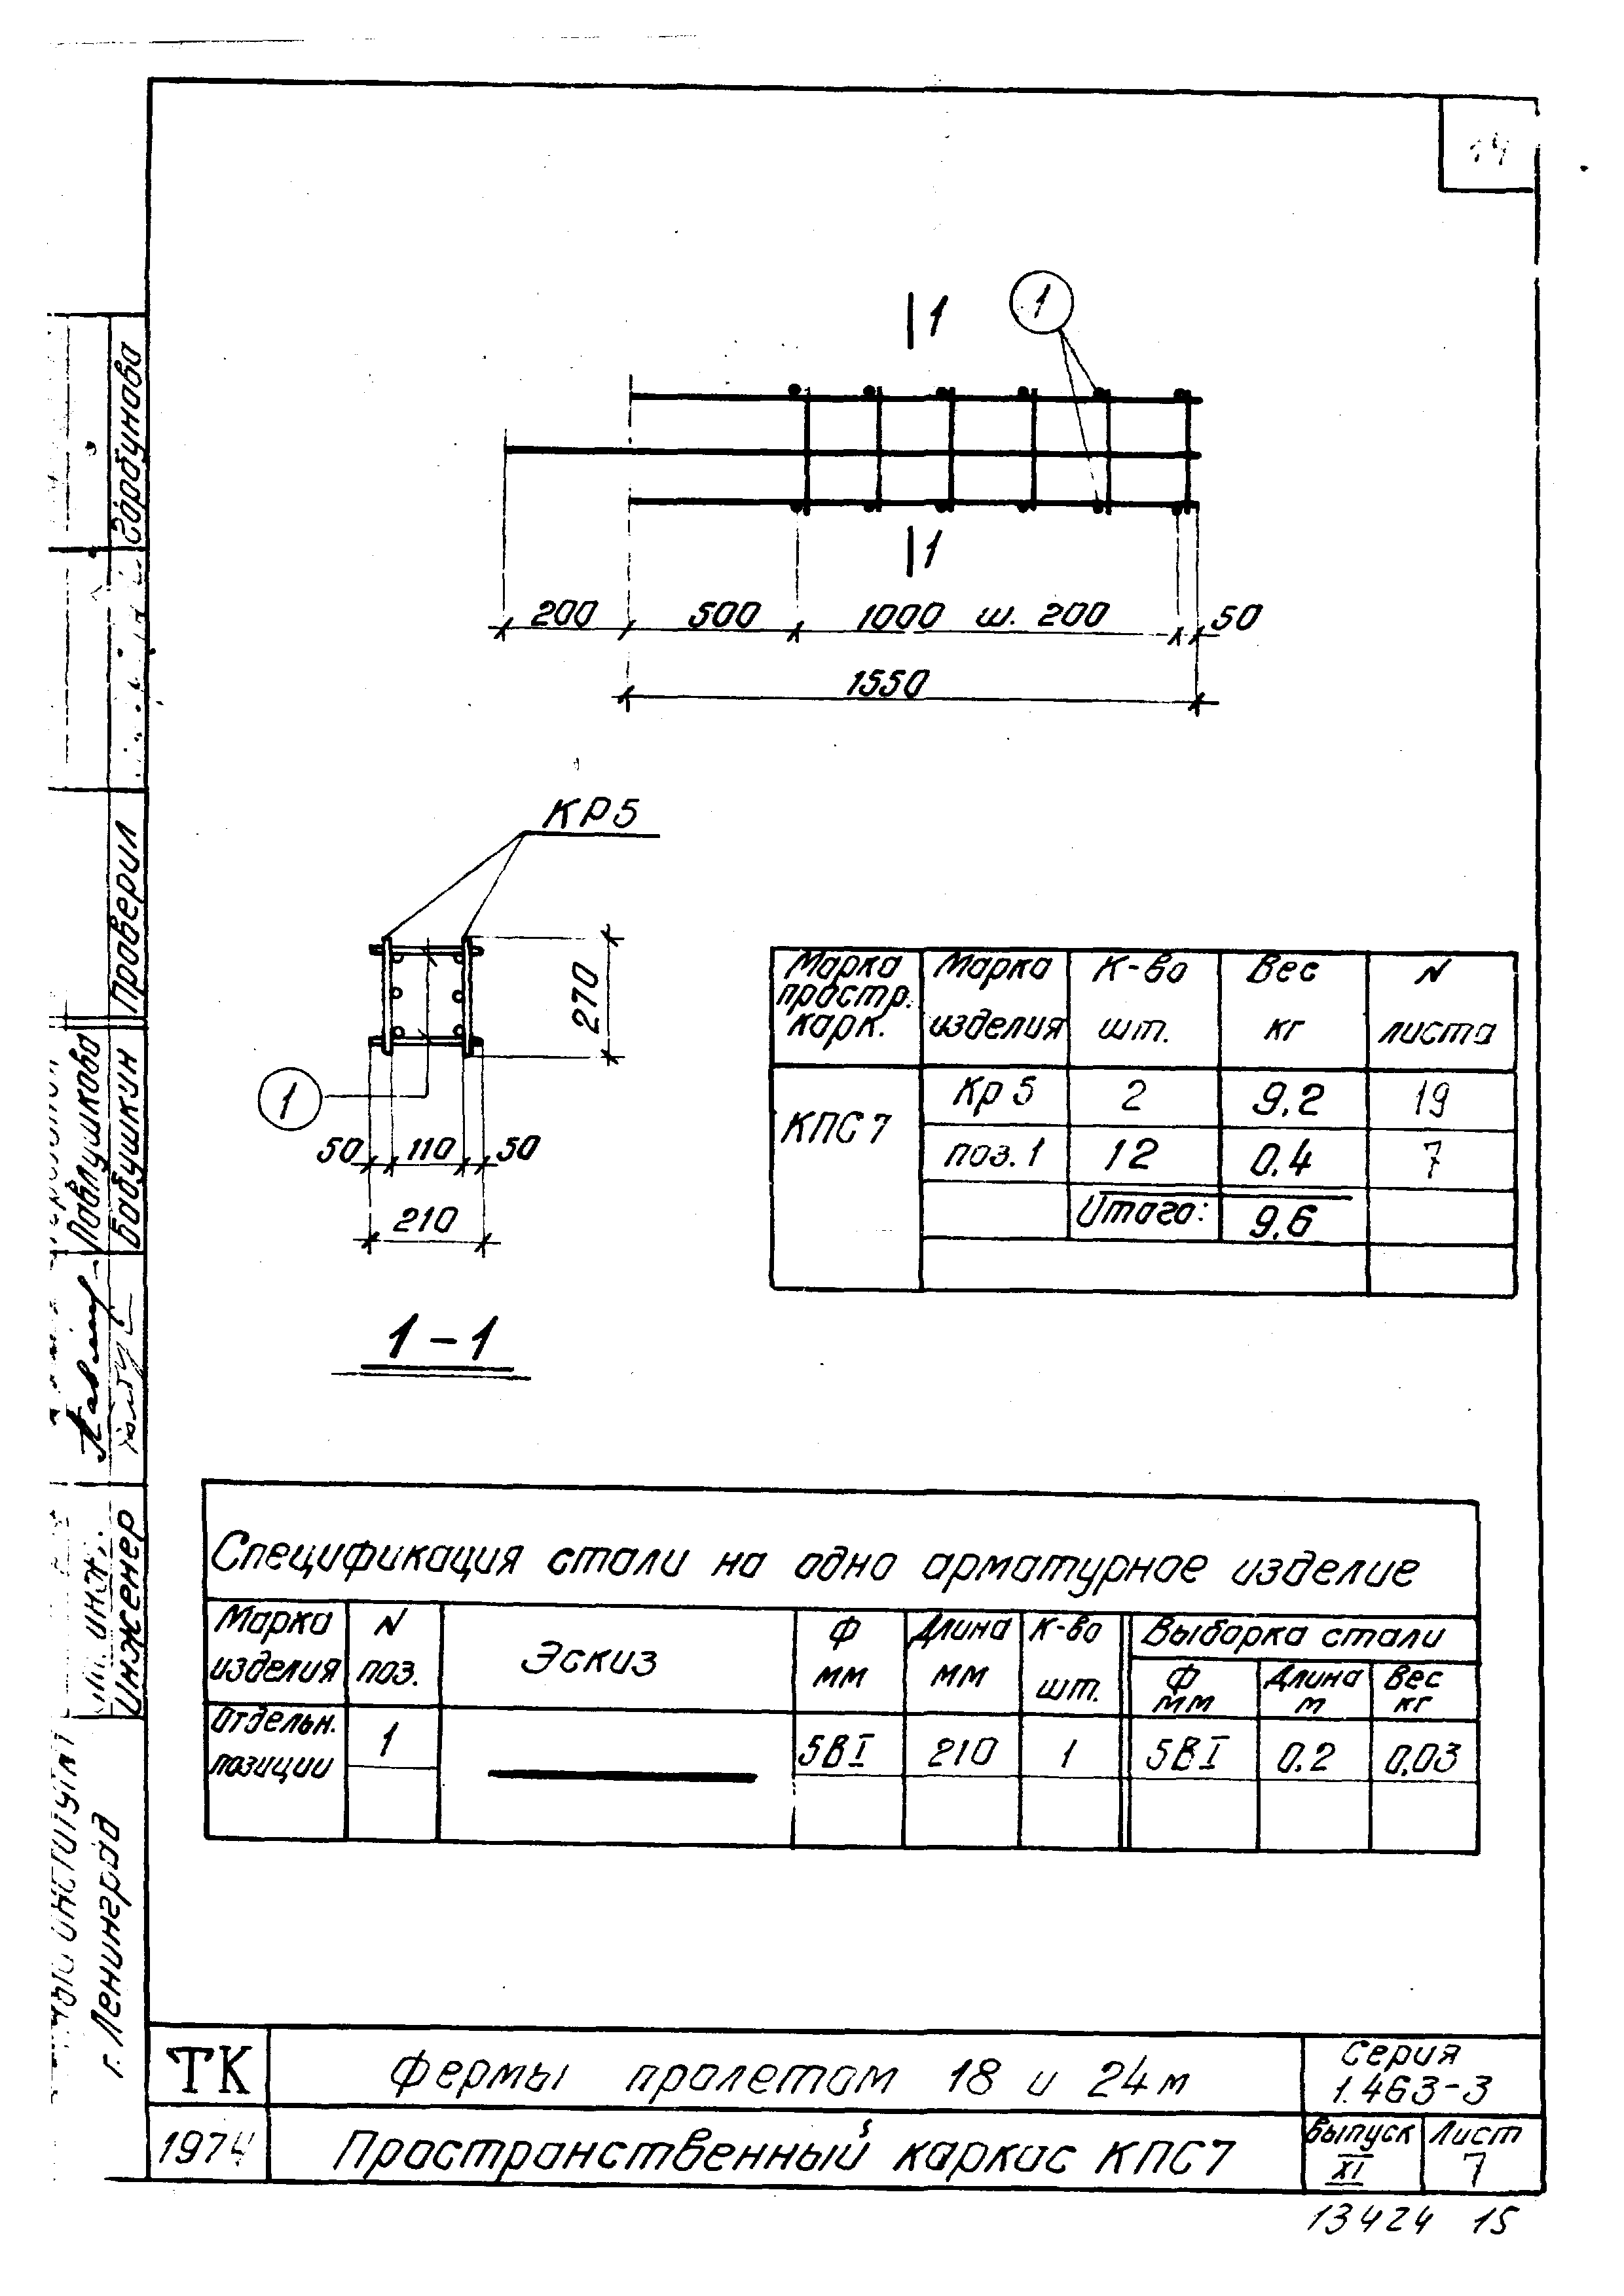 14
1
1
1
200 500 1000 ш. 200 50
1550
КР5
270
1
50 110 50
210
1-1
Марка простр. карк. Марка изделия К-во шт. Вес кг N листа
КПС7 Кр5 2 9,2 19
поз.1 12 0.4 7
Итого: 9,6
Спецификация стали на одно арматурное изделие
Марка изделия N поз. Эскиз Ф мм Длина мм К-во шт. Выборка стали
Ф мм Длина м Вес кг
Отдельн. позиции 1 5ВI 210 1 5ВI 0.2 0,03
ТК Фермы пролетом 18 и 24м Серия 1.463-3
1974 Пространственный каркас КПС7 Выпуск XI Лист 7
13424 15
Горбунова
Проверил
Павлушкова
Бабушкин
инж.
Инженер
институт
г. Ленинград